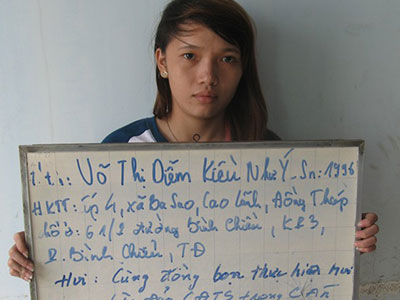 Võ Thị Diễm Kiều Như Ý - Sn: 1996
HKTT: ấp 4, xã Ba Sao, Cao Lãnh, Đồng Tháp
đường Bình Chiểu, KP3,
P. Bình Chiểu, TĐ
Hvi: Cùng đồng bọn thực hiện
trong